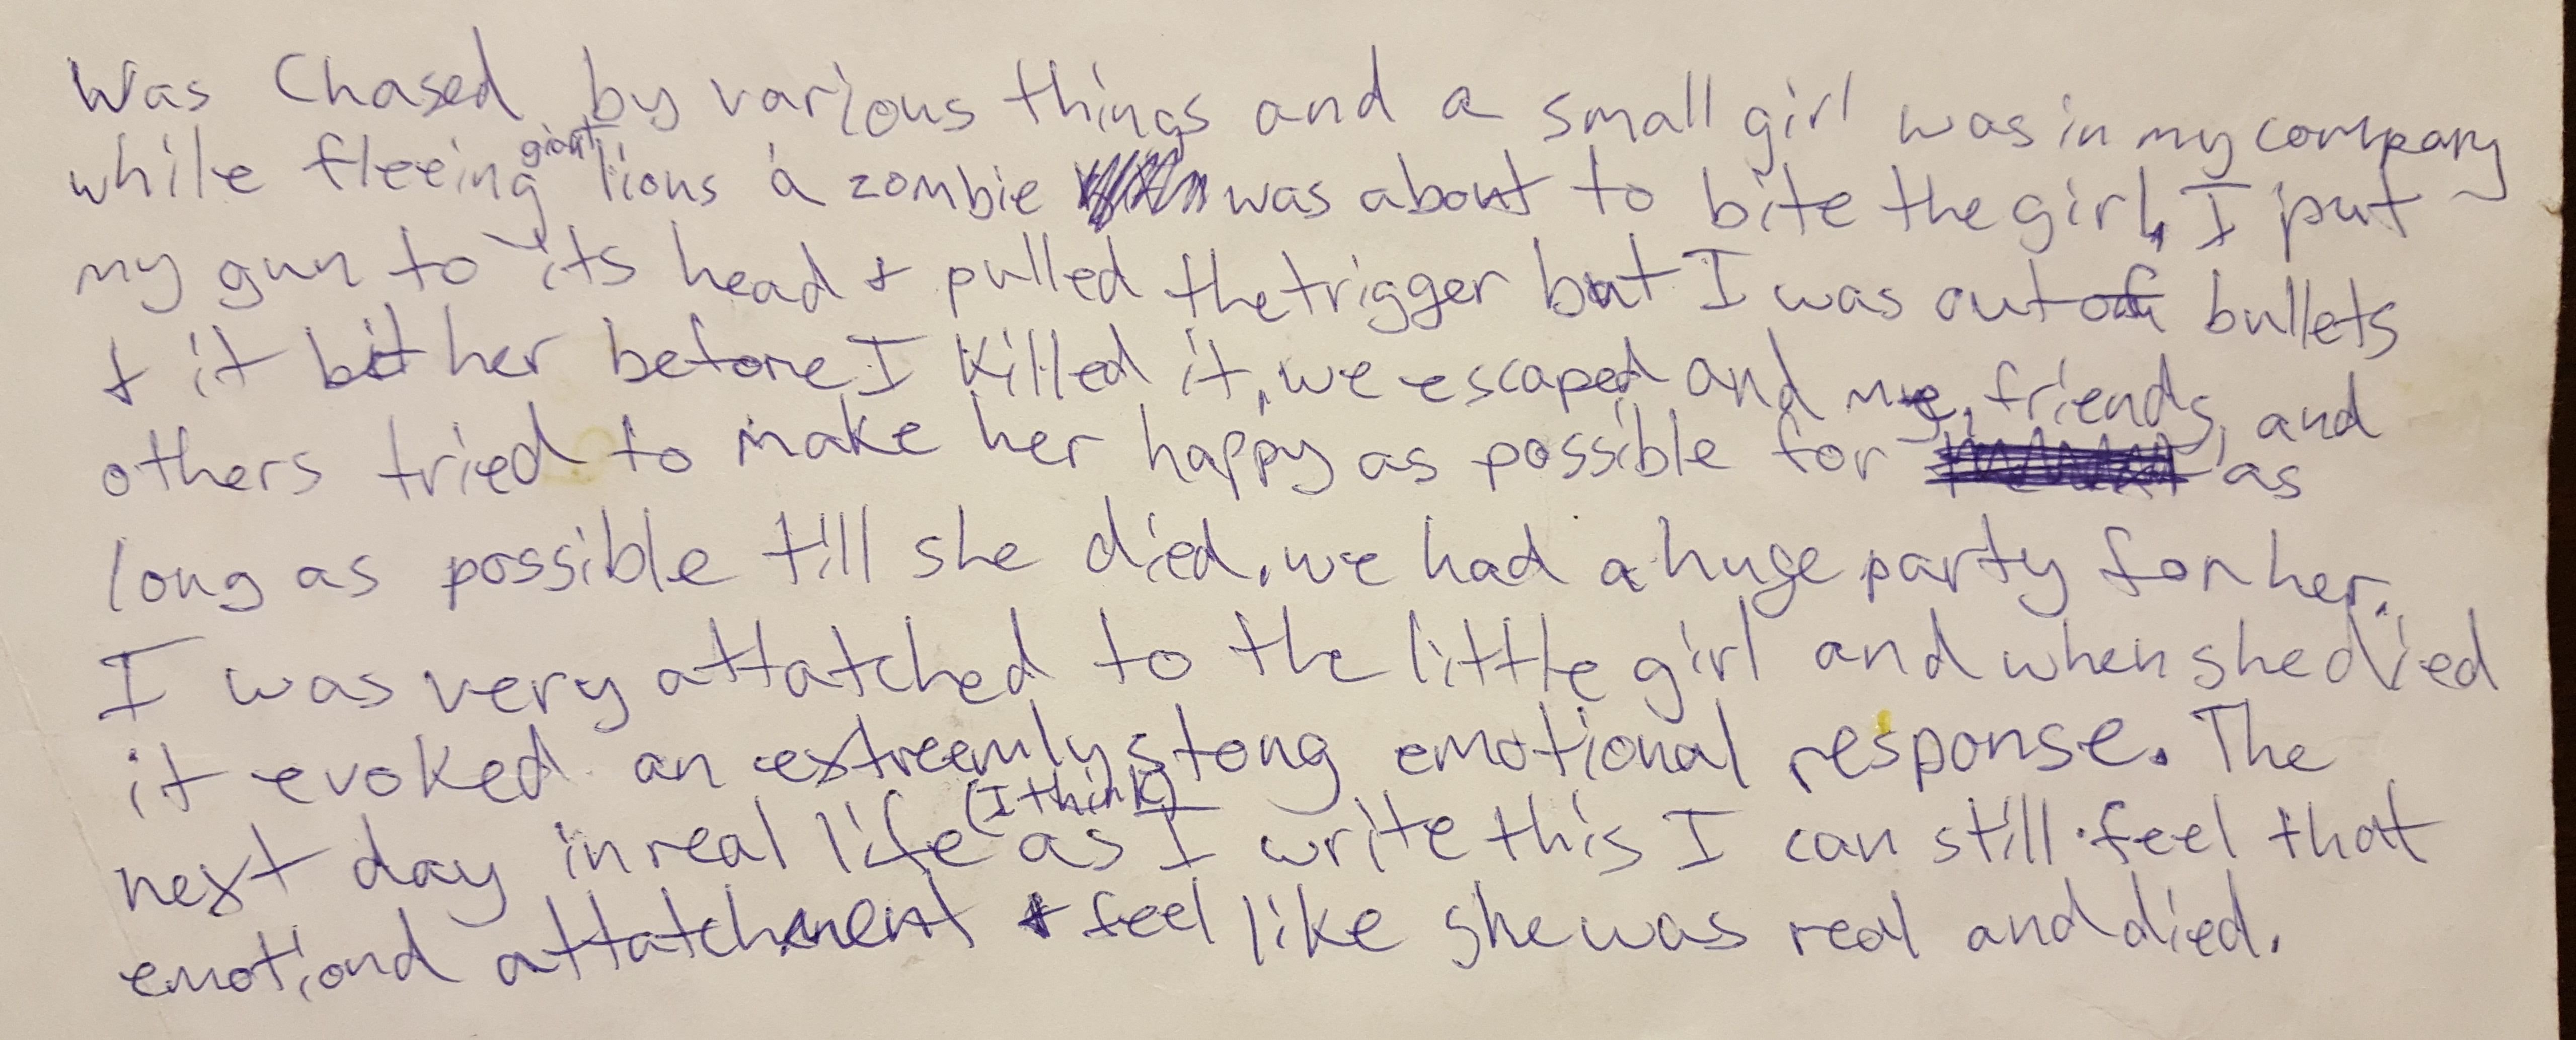 Was Chased by various things and a small girl was in my company
while fleeing giant lions a zombie was about to bite the girl, I put
my gun to its head + pulled the trigger but I was out of bullets
+ it bit her before I killed it, we escaped and me, friends, and
others tried to make her happy as possible for as
long as possible till she died. we had a huge party for her.
I was very attatched to the little girl and when she died
it evoked an extreemly stong emotional response. The
next day in real life (I think) as I write this I can still feel that
emotional attatchment + feel like she was real and died.